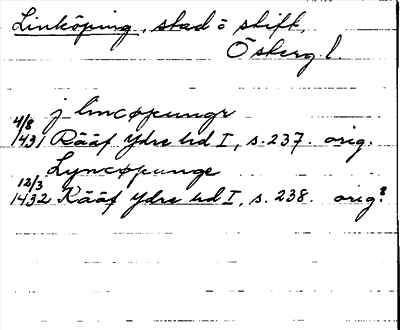 Linköping, stad o stift,
Östergl.
j lincøpungr
4/8
1431 Rääf Ydre hd I, s. 237. orig.
Lyncøpunge
12/3
1432 Rääf Ydre hd I, s. 238. orig?